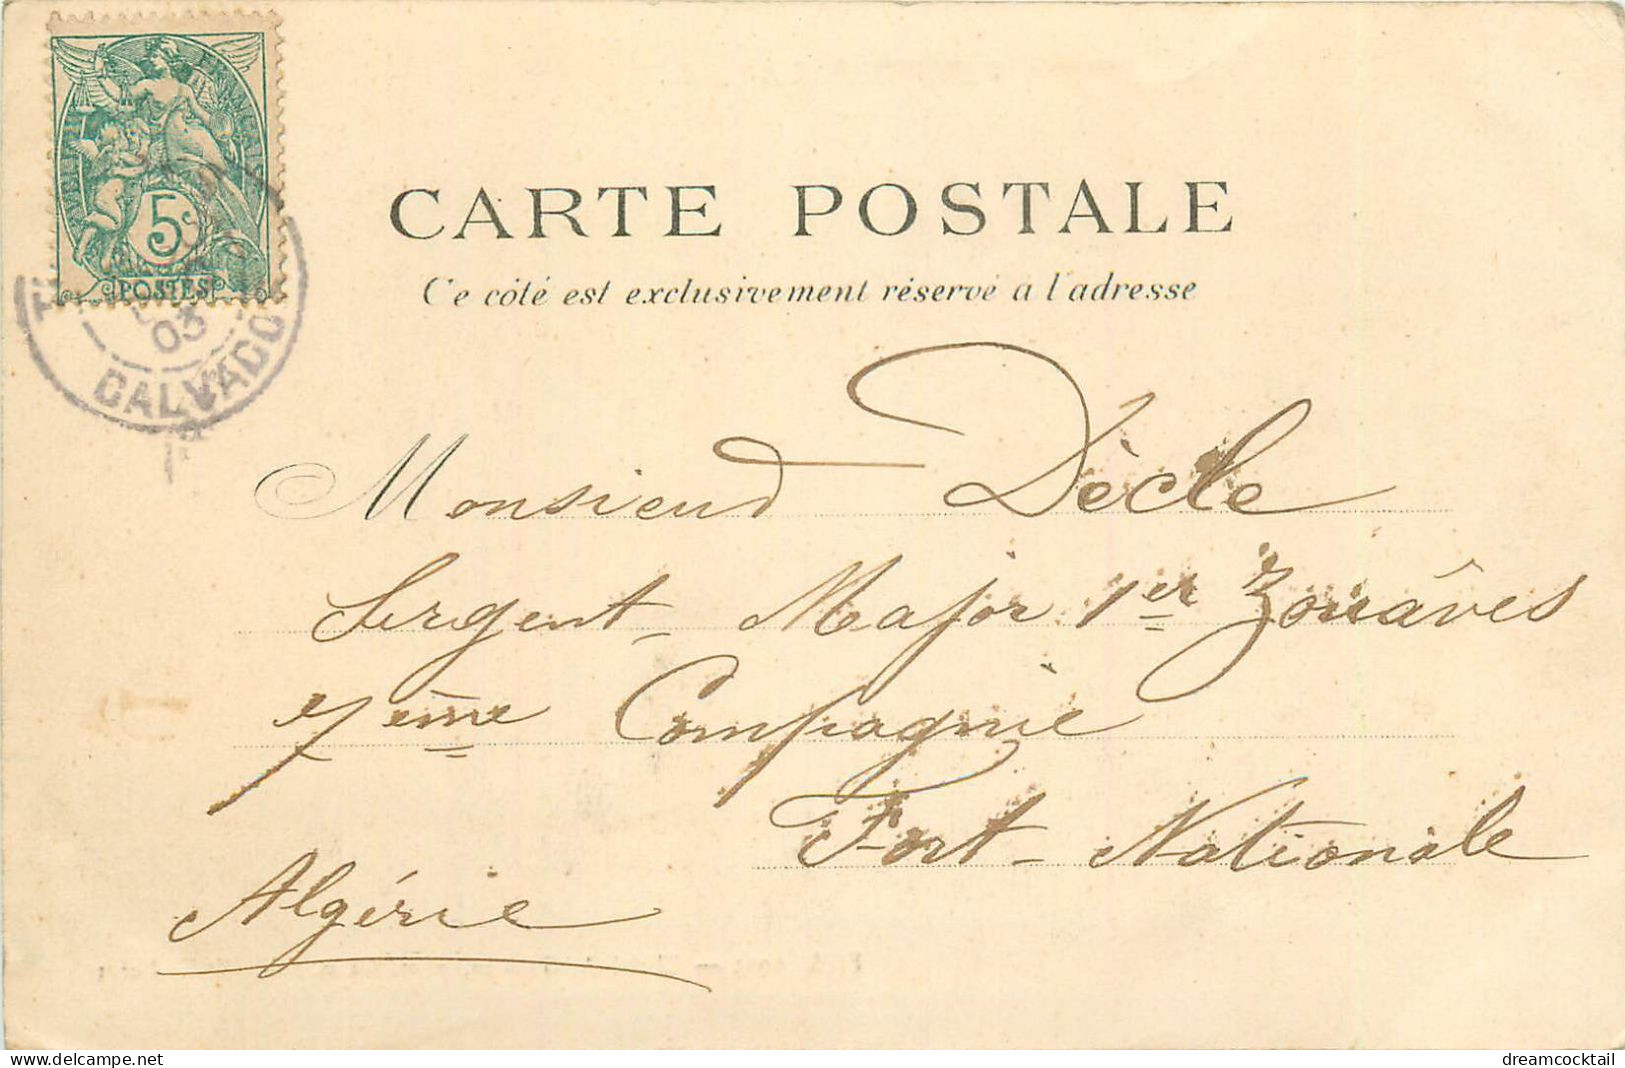 RÉPUBLIQUE FRANÇAISE
5c
POSTES
03
CALVADO
CARTE POSTALE
Ce côté est exclusivement réservé a l'adresse
Monsieur Dècle
Sergent-Major 1er Zouâves
7ème Compagnie
Fort-Nationale
Algérie
www.delcampe.net
dreamcocktail